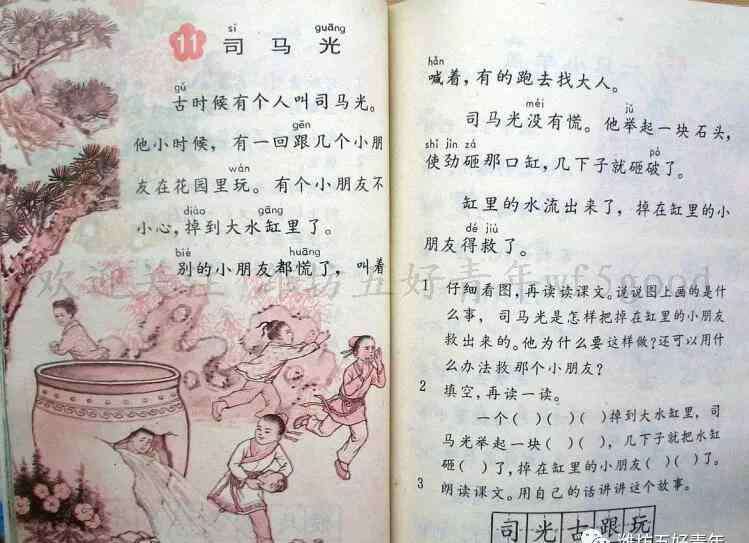 11 司马光
sī guāng
gǔ
古时候有个人叫司马光。
gēn
他小时候，有一回跟几个小朋
wán
友在花园里玩。有个小朋友不
diào gāng
小心，掉到大水缸里了。
bié huāng
别的小朋友都慌了，叫着
hǎn
喊着，有的跑去找大人。
méi jǔ
司马光没有慌。他举起一块石头，
shǐ jìn zá pò
使劲砸那口缸，几下子就砸破了。
缸里的水流出来了，掉在缸里的小
dé jiù
朋友得救了。
1 仔细看图，再读读课文。说说图上画的是什
么事，司马光是怎样把掉在缸里的小朋友
救出来的。他为什么要这样做？还可以用什
么办法救那个小朋友？
2 填空，再读一读。
一个（ ）（ ）（ ）掉到大水缸里，司
马光举起一块（ ）（ ），几下子就把水缸
砸（ ）了，掉在缸里的小朋友（ ）（ ）了。
3 朗读课文。用自己的话讲讲这个故事。
司光古跟玩
欢迎关注 潍坊五好青年wf5good
潍坊五好青年